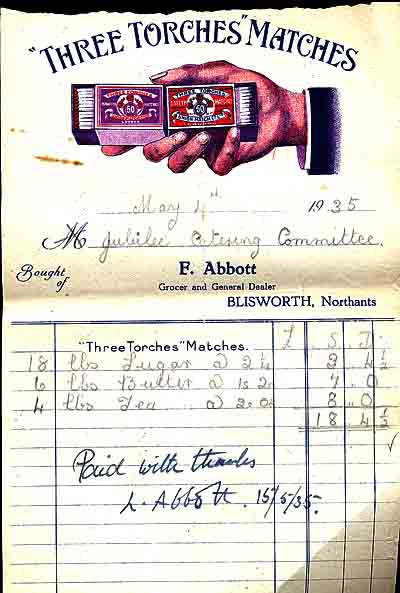 "THREE TORCHES" MATCHES
THREE TORCHES
50
THREE TORCHES
50
May 4th 1935
M Jubilee Catering Committee.
Bought of
F. Abbott
Grocer and General Dealer
BLISWORTH, Northants
"Three Torches" Matches.
£ S. D.
18 lbs Sugar @ 2¼ 3 4½
6 lbs Butter @ 1s 2. 7 " 0
4 lbs Tea @ 2s 0d 8 " 0
18 4½
Paid with thanks
L. Abbott. 15/5/35.